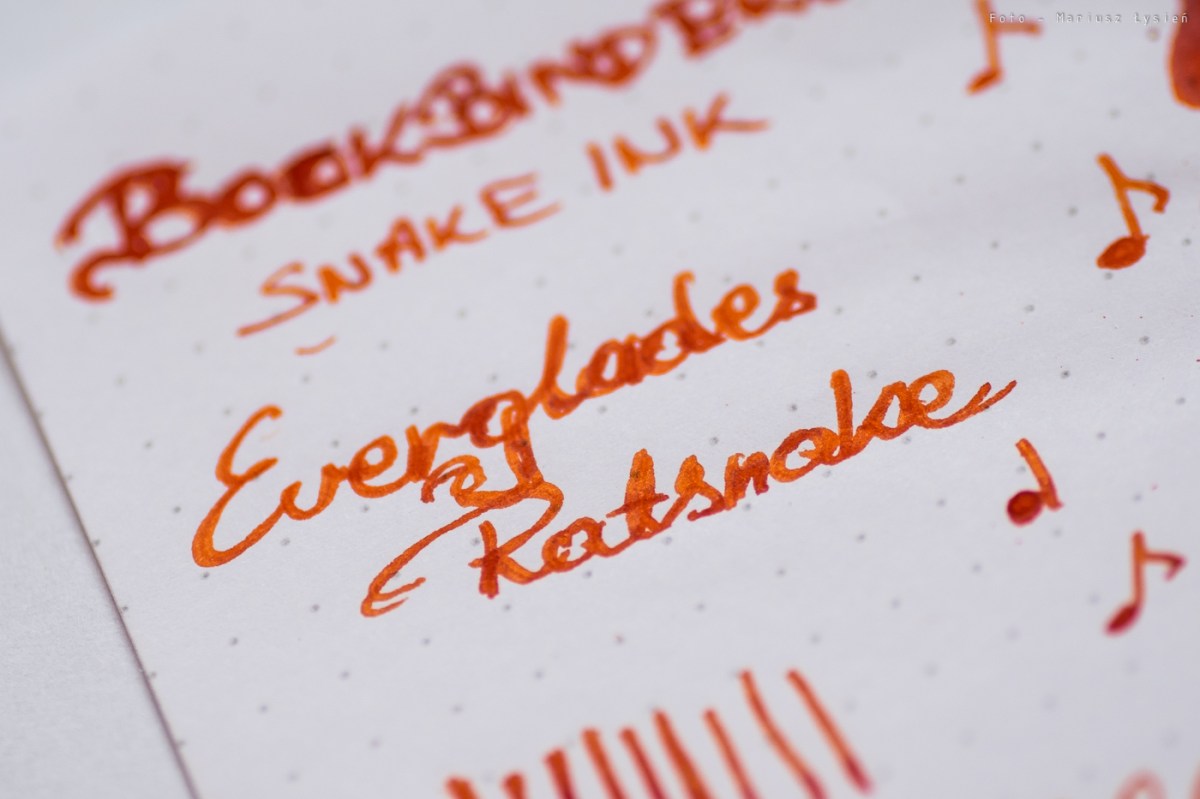 Foto - Mariusz Łysień
BookBinder
SNAKE INK
Everglades
Ratsnake